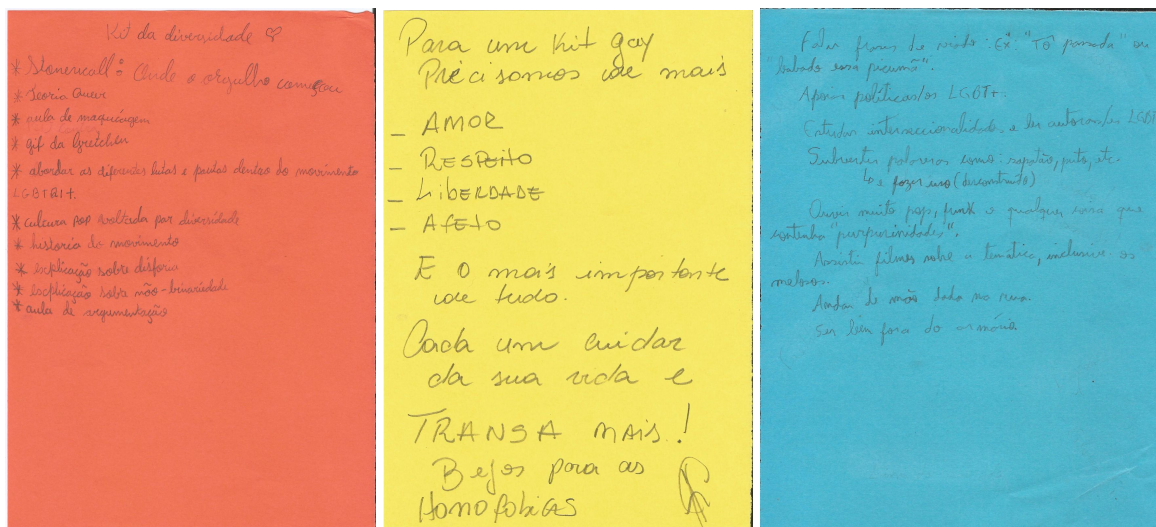 Kit da diversidade ♡
* Stonewall: Onde o orgulho começou
* Teoria Queer
* aula de maquiagem
* gif da Gretchen
* abordar as diferentes lutas e pautas dentro do movimento
LGBTQI+.
* cultura pop voltada por diversidade
* historia do movimento
* explicação sobre disforia
* explicação sobre não-binariedade
* aula de argumentação
Para um Kit gay
Precisamos de mais
- AMOR
- RESPEITO
- LIBERDADE
- AFETO
E o mais importante
de tudo.
Cada um cuidar
da sua vida e
TRANSA MAIS!
Bejos para as
HOMOFOBICAS
Falar frases de viado: Ex: "Tô passada" ou
"babado essa picumã".
Apoiar políticas/os LGBT+.
Estudar interseccionalidade, e ler autoras/es LGBT
Subverter palavras como: sapatão, puta, etc.
↳ e fazer uso (desconstruído)
Ouvir muito pop, funk e qualquer coisa que
contenha "purpurinidades".
Assistir filmes sobre a temática, inclusive os
melosos.
Andar de mãos dadas na rua.
Ser bem fora do armário